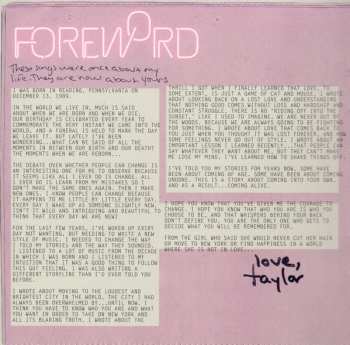 FOREWORD
These songs were once about my
life. They are now about yours.
I WAS BORN IN READING, PENNSYLVANIA ON
DECEMBER 13, 1989.
IN THE WORLD WE LIVE IN, MUCH IS SAID
ABOUT WHEN WE ARE BORN AND WHEN WE DIE.
OUR BIRTHDAY IS CELEBRATED EVERY YEAR TO
COMMEMORATE THE VERY INSTANT WE CAME INTO THE
WORLD, AND A FUNERAL IS HELD TO MARK THE DAY
WE LEAVE IT. BUT LATELY I'VE BEEN
WONDERING...WHAT CAN BE SAID OF ALL THE
MOMENTS IN BETWEEN OUR BIRTH AND OUR DEATH?
THE MOMENTS WHEN WE ARE REBORN...
THE DEBATE OVER WHETHER PEOPLE CAN CHANGE IS
AN INTERESTING ONE FOR ME TO OBSERVE BECAUSE
IT SEEMS LIKE ALL I EVER DO IS CHANGE. ALL
I EVER DO IS LEARN FROM MY MISTAKES SO I
DON'T MAKE THE SAME ONES AGAIN. THEN I MAKE
NEW ONES. I KNOW PEOPLE CAN CHANGE BECAUSE
IT HAPPENS TO ME LITTLE BY LITTLE EVERY DAY.
EVERY DAY I WAKE UP AS SOMEONE SLIGHTLY NEW.
ISN'T IT WILD AND INTRIGUING AND BEAUTIFUL TO
THINK THAT EVERY DAY WE ARE NEW?
FOR THE LAST FEW YEARS, I'VE WOKEN UP EVERY
DAY NOT WANTING, BUT NEEDING TO WRITE A NEW
STYLE OF MUSIC. I NEEDED TO CHANGE THE WAY
I TOLD MY STORIES AND THE WAY THEY SOUNDED.
I LISTENED TO A LOT OF MUSIC FROM THE DECADE
IN WHICH I WAS BORN AND I LISTENED TO MY
INTUITION THAT IT WAS A GOOD THING TO FOLLOW
THIS GUT FEELING. I WAS ALSO WRITING A
DIFFERENT STORYLINE THAN I'D EVER TOLD YOU
BEFORE.
I WROTE ABOUT MOVING TO THE LOUDEST AND
BRIGHTEST CITY IN THE WORLD, THE CITY I HAD
ALWAYS BEEN OVERWHELMED BY...UNTIL NOW. I
THINK YOU HAVE TO KNOW WHO YOU ARE AND WHAT
YOU WANT IN ORDER TO TAKE ON NEW YORK AND
ALL ITS BLARING TRUTH. I WROTE ABOUT THE
THRILL I GOT WHEN I FINALLY LEARNED THAT LOVE, TO
SOME EXTENT, IS JUST A GAME OF CAT AND MOUSE. I WROTE
ABOUT LOOKING BACK ON A LOST LOVE AND UNDERSTANDING
THAT NOTHING GOOD COMES WITHOUT LOSS AND HARDSHIP AND
CONSTANT STRUGGLE. THERE IS NO "RIDING OFF INTO THE
SUNSET", LIKE I USED TO IMAGINE. WE ARE NEVER OUT OF
THE WOODS, BECAUSE WE ARE ALWAYS GOING TO BE FIGHTING
FOR SOMETHING. I WROTE ABOUT LOVE THAT COMES BACK TO
YOU JUST WHEN YOU THOUGHT IT WAS LOST FOREVER, AND HOW
SOME FEELINGS NEVER GO OUT OF STYLE. I WROTE ABOUT AN
IMPORTANT LESSON I LEARNED RECENTLY... THAT PEOPLE CAN
SAY WHATEVER THEY WANT ABOUT ME, BUT THEY CAN'T MAKE
ME LOSE MY MIND. I'VE LEARNED HOW TO SHAKE THINGS OFF.
I'VE TOLD YOU MY STORIES FOR YEARS NOW. SOME HAVE
BEEN ABOUT COMING OF AGE. SOME HAVE BEEN ABOUT COMING
UNDONE. THIS IS A STORY ABOUT COMING INTO YOUR OWN,
AND AS A RESULT...COMING ALIVE.
I HOPE YOU KNOW THAT YOU'VE GIVEN ME THE COURAGE TO
CHANGE. I HOPE YOU KNOW THAT WHO YOU ARE IS WHO YOU
CHOOSE TO BE, AND THAT WHISPERS BEHIND YOUR BACK
DON'T DEFINE YOU. YOU ARE THE ONLY ONE WHO GETS TO
DECIDE WHAT YOU WILL BE REMEMBERED FOR.
FROM THE GIRL WHO SAID SHE WOULD NEVER CUT HER HAIR
OR MOVE TO NEW YORK OR FIND HAPPINESS IN A WORLD
WHERE SHE IS NOT IN LOVE...
love,
taylor